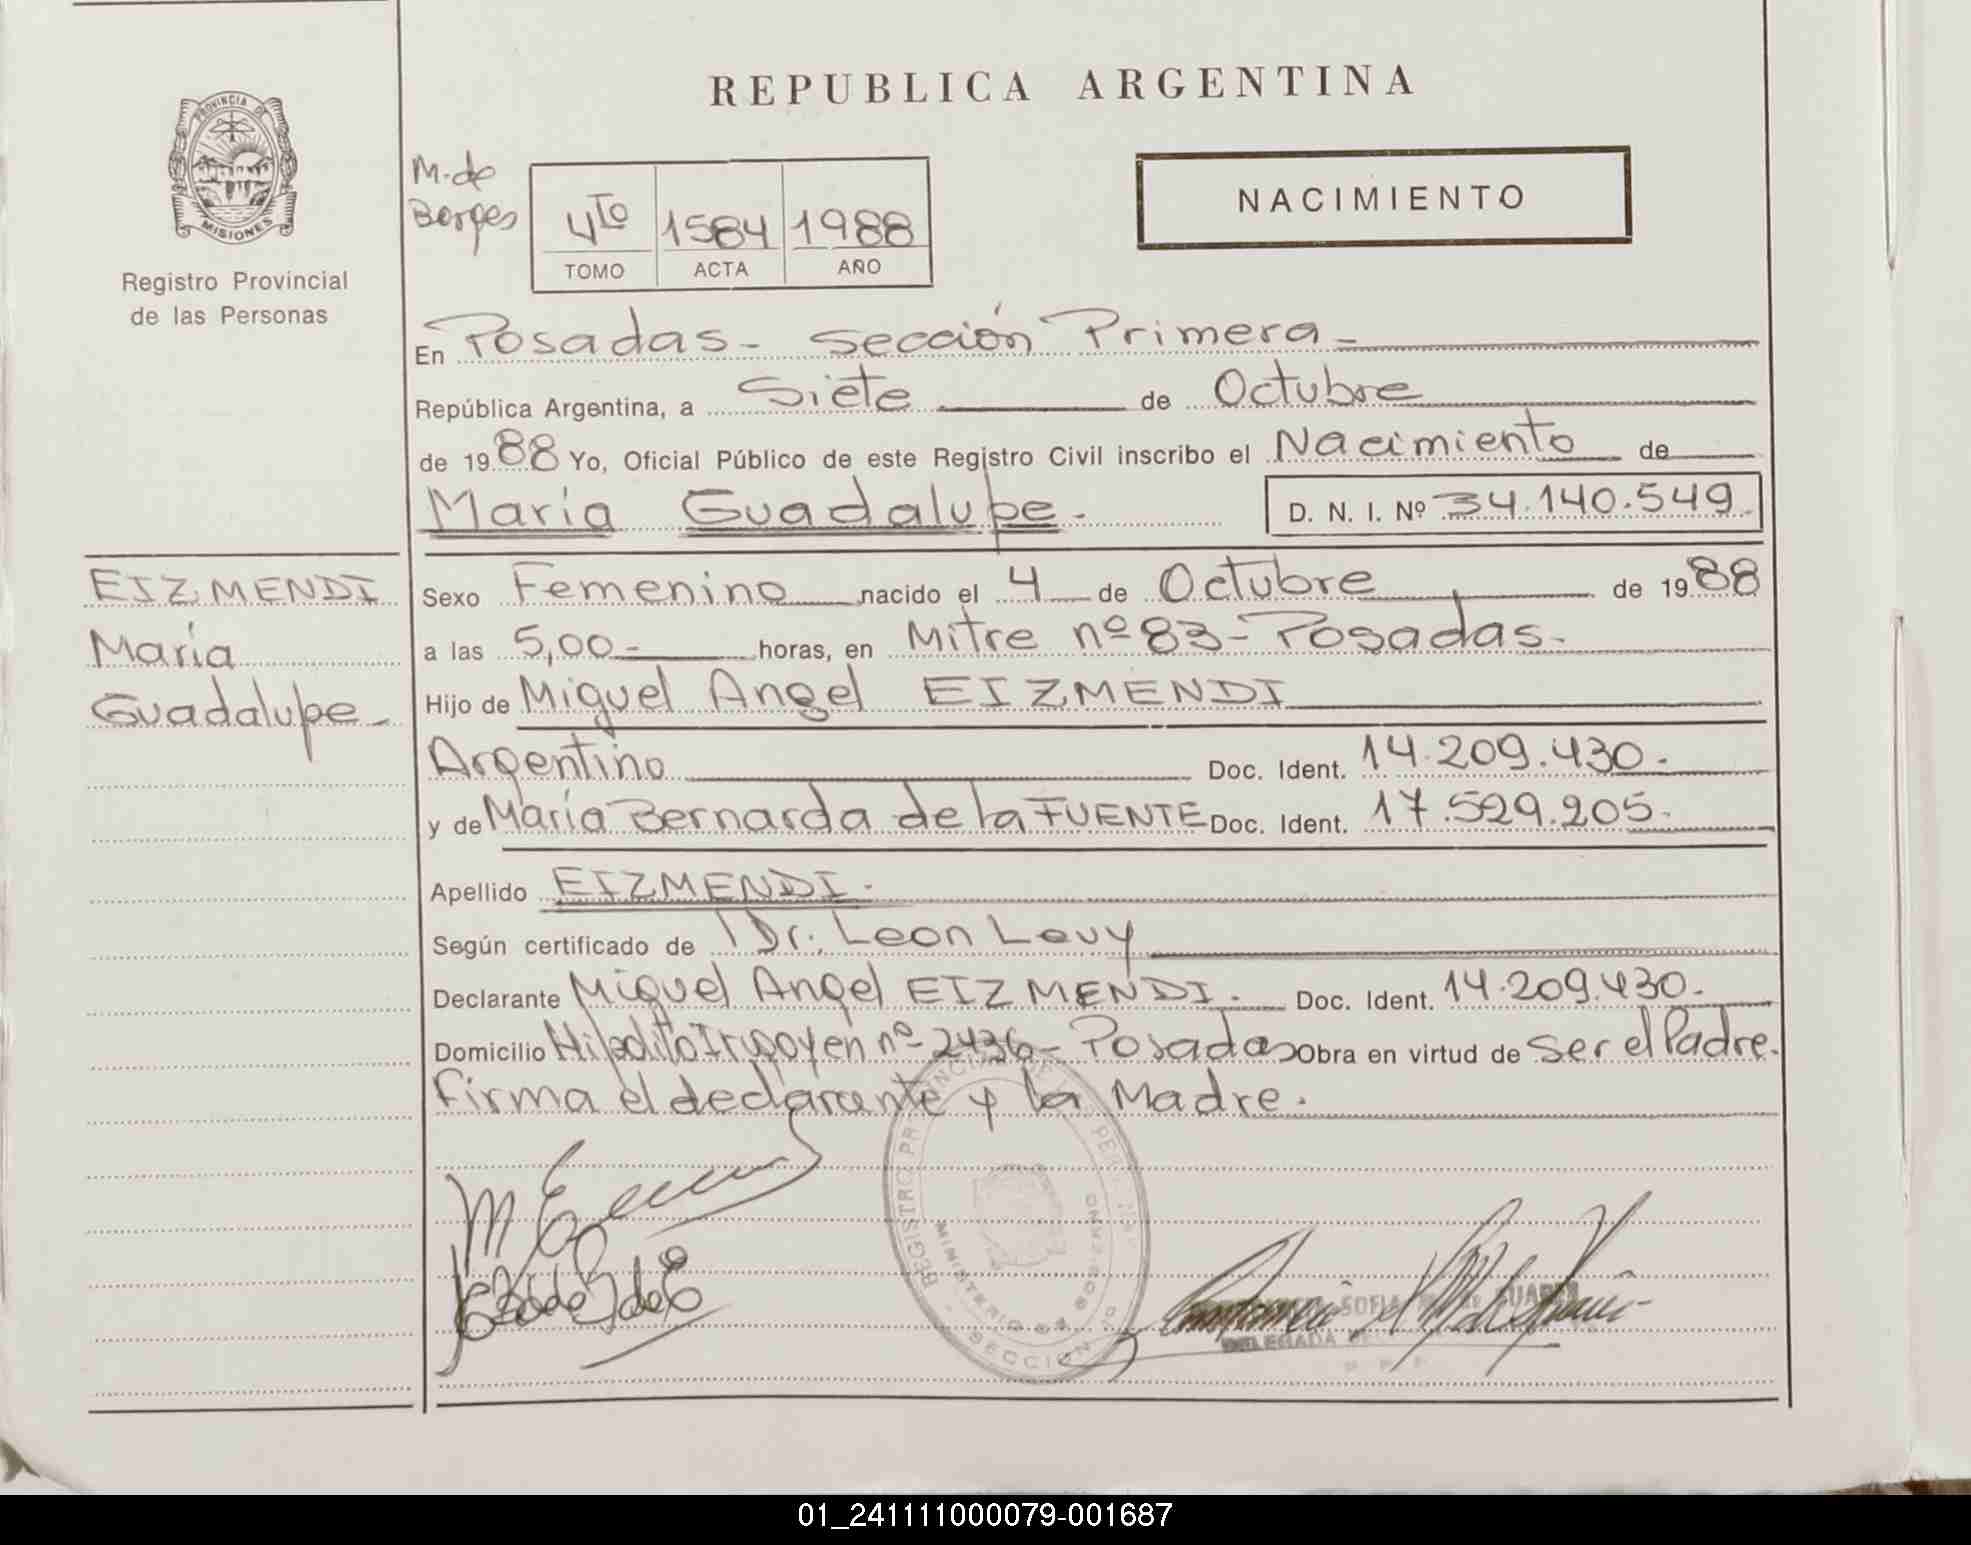 REPUBLICA ARGENTINA
PROVINCIA DE
MISIONES
Registro Provincial
de las Personas
M. de
Borges
4to 1584 1988
TOMO ACTA AÑO
NACIMIENTO
En Posadas - Sección Primera -
República Argentina, a Siete de Octubre
de 1988 Yo, Oficial Público de este Registro Civil inscribo el Nacimiento de
María Guadalupe. D. N. I. Nº 34.140.549
EIZMENDI
María
Guadalupe -
Sexo Femenino nacido el 4 de Octubre de 1988
a las 5,00 - horas, en Mitre nº 83 - Posadas.
Hijo de Miguel Angel EIZMENDI
Argentino Doc. Ident. 14.209.430.
y de María Bernarda de la FUENTE Doc. Ident. 17.529.205.
Apellido EIZMENDI.
Según certificado de Dr. Leon Levy
Declarante Miguel Angel EIZMENDI. Doc. Ident. 14.209.430.
Domicilio Hipolito Irigoyen nº 2436 - Posadas Obra en virtud de ser el Padre.
firma el declarante y la Madre.
REGISTRO PROVINCIAL DE LAS PERSONAS
MINISTERIO DE GOBIERNO
SECCION
SOFIA de SUAREZ
DELEGADA
01_241111000079-001687